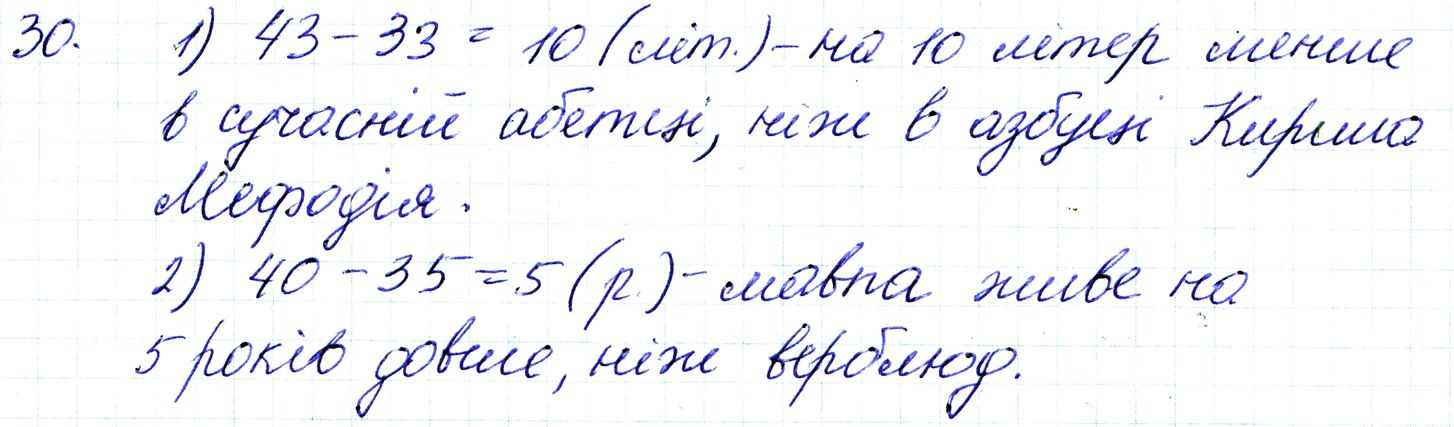 30. 1) 43 - 33 = 10 (літ.) - на 10 літер менше
в сучасній абетці, ніж в азбуці Кирила
Мефодія.
2) 40 - 35 = 5 (р.) - мавпа живе на
5 років довше, ніж верблюд.